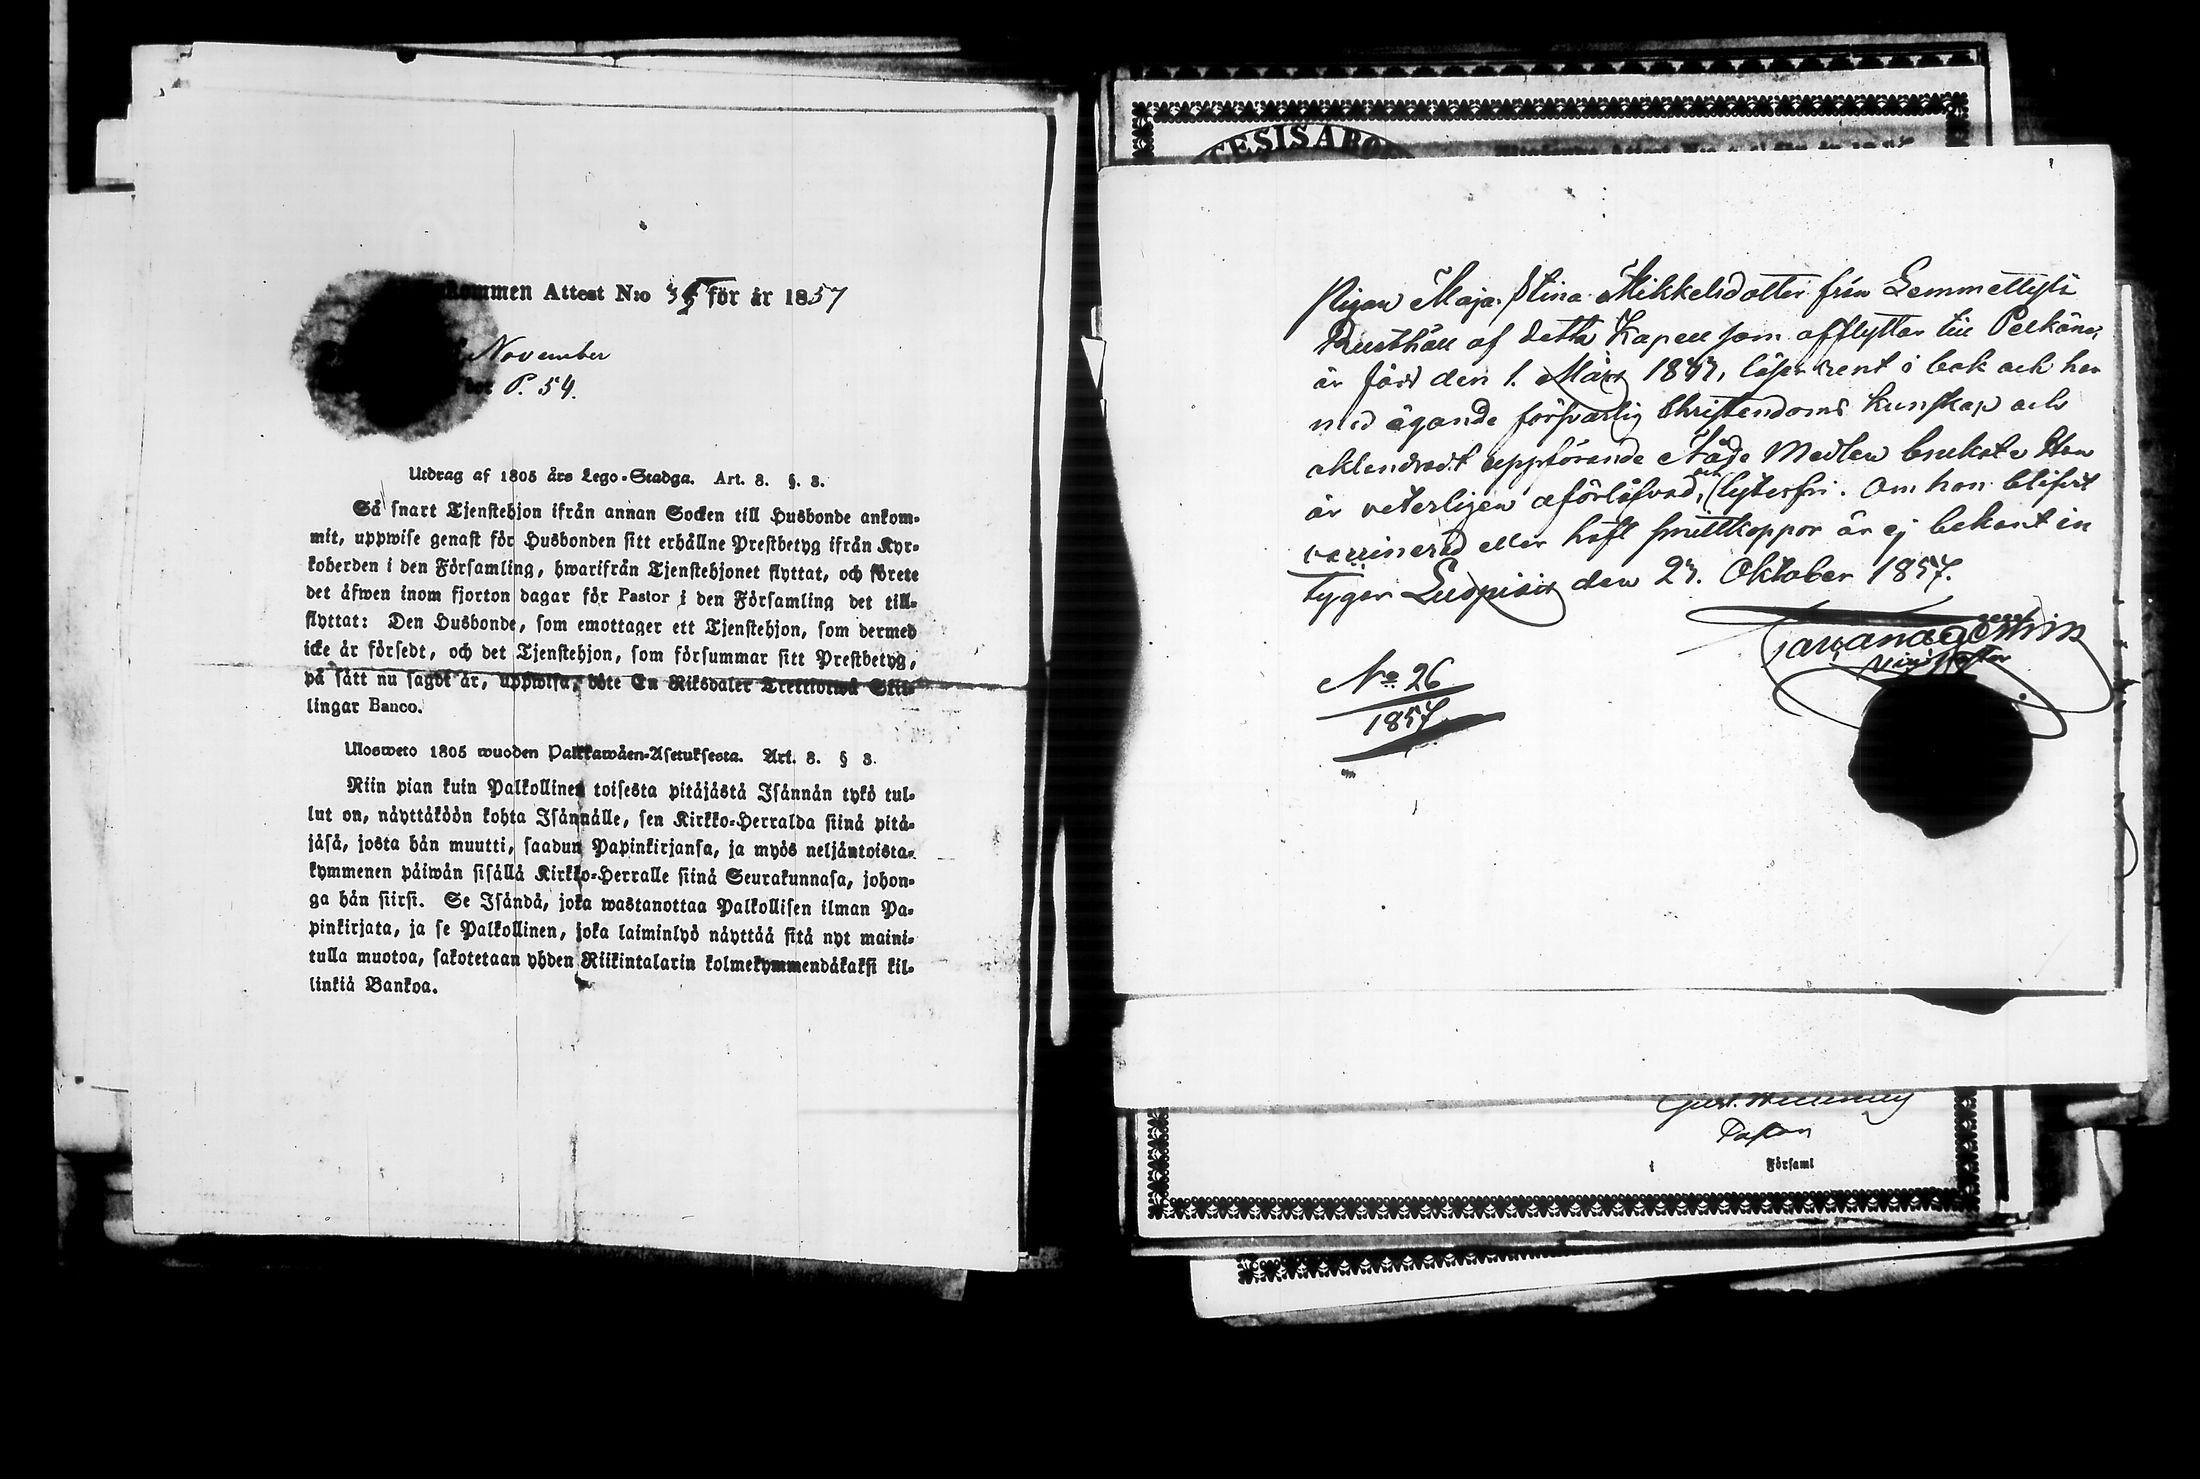 kommen Attest N:o 35 för år 1857
November
P. 54.
Utdrag af 1805 års Lego-Stadga. Art. 8. §. 3.
Så snart Tjenstehjon ifrån annan Socken till Husbonde ankom-
mit, uppwise genast för Husbonden sitt erhållne Prestbetyg ifrån Kyr-
koherden i den Församling, hwarifrån Tjenstehjonet flyttat, och förete
det äfwen inom fjorton dagar för Pastor i den Församling det till-
flyttat: Den Husbonde, som emottager ett Tjenstehjon, som dermed
icke är försedt, och det Tjenstehjon, som försummar sitt Prestbetyg,
på sätt nu sagdt är, uppwisa, böte En Riksdaler Trettiotwå Skil-
lingar Banco.
Ulosweto 1805 wuoden Palkkawäen-Asetuksesta. Art. 8. § 3.
Niin pian kuin Palkollinen toisesta pitäjästä Isännän tykö tul-
lut on, näyttäköön kohta Isännälle, sen Kirkko-Herralda siinä pitä-
jäsä, josta hän muutti, saadun Papinkirjansa, ja myös neljäntoista-
kymmenen päiwän sisällä Kirkko-Herralle siinä Seurakunnasa, johon-
ga hän siirsi. Se Isändä, joka wastanottaa Palkollisen ilman Pa-
pinkirjata, ja se Palkollinen, joka laiminlyö näyttää sitä nyt maini-
tulla muotoa, sakotetaan yhden Riikintalarin kolmekymmendäkaksi kil-
linkiä Bankoa.
Pigan Maja Stina Mikkelsdotter från Lemmettylä
Rusthåll af detta Kapell som afflyttar till Pelkäne,
är född den 1. Mars 1837, läser rent i bok och har
med ägande försvarlig Christendoms kunskap och
oklandradt uppförande Nåde Medlen brukat. Hon
är veterligen oförlofvad, lytesfri. Om hon blifvit
vaccinerad eller haft smittkoppor är ej bekant in
tygar Luopiois den 27. Oktober 1857.
No 26
1857
Gust.
Pastor
i Församl